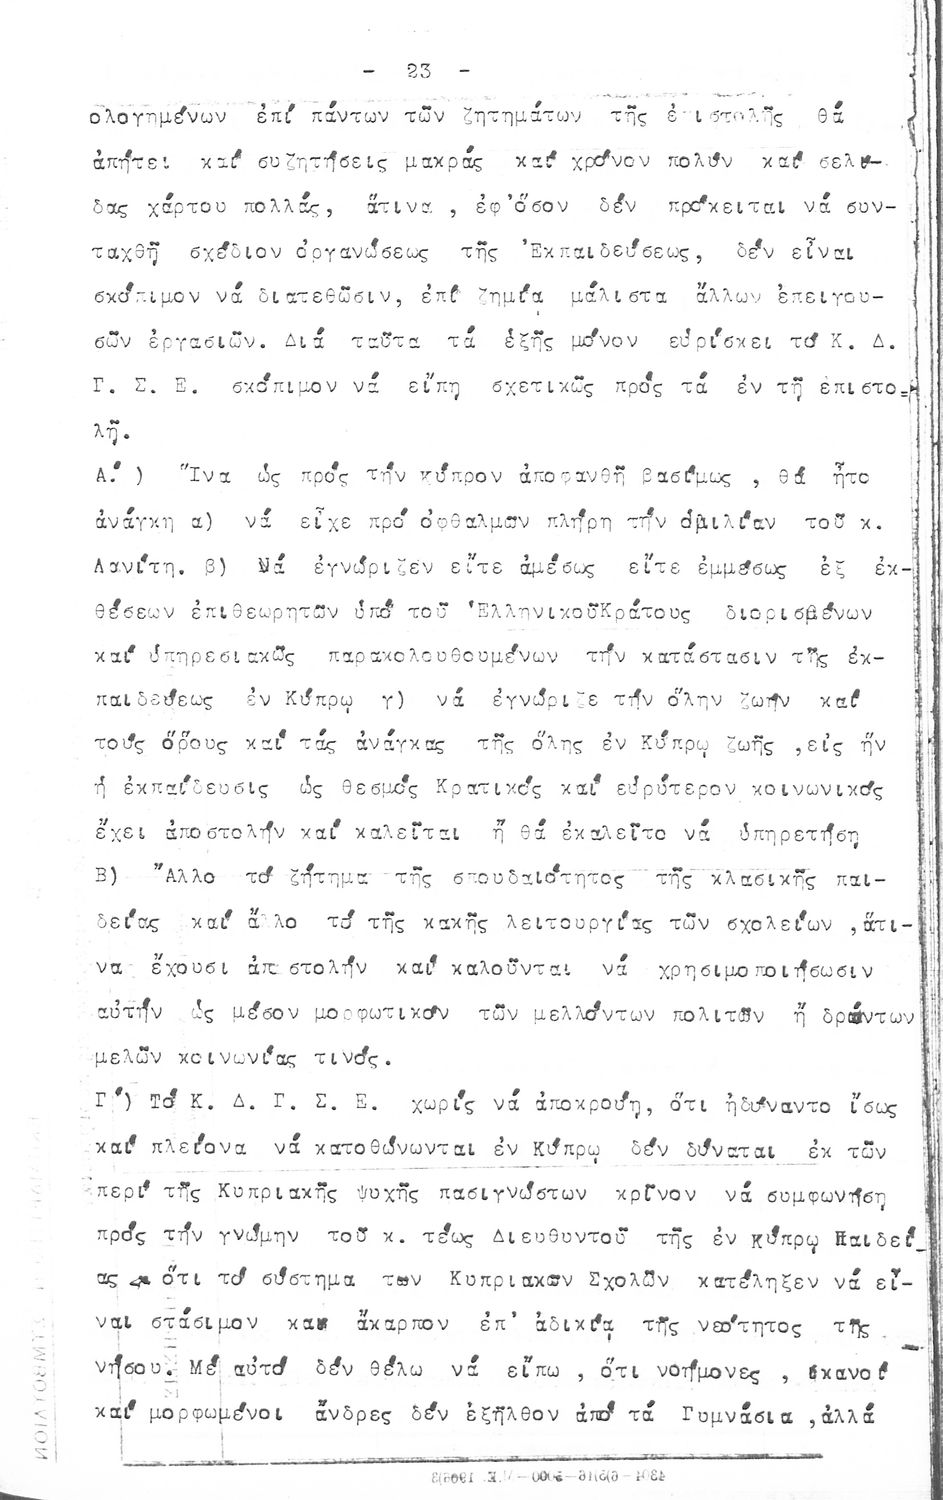 - 23 -
ολογημένων ἐπί πάντων τῶν ζητημάτων τῆς ἐπιστολῆς θά
ἀπῄτει καί συζητήσεις μακράς καί χρόνον πολύν καί σελί-
δας χάρτου πολλάς, ἅτινα , ἐφ'ὅσον δέν πρόκειται νά συν-
ταχθῇ σχέδιον ὀργανώσεως τῆς Ἐκπαιδεύσεως, δέν εἶναι
σκόπιμον νά διατεθῶσιν, ἐπί ζημίᾳ μάλιστα ἄλλων ἐπειγου-
σῶν ἐργασιῶν. Διά ταῦτα τά ἑξῆς μόνον εὑρίσκει τό Κ. Δ.
Γ. Σ. Ε. σκόπιμον νά εἴπῃ σχετικῶς πρός τά ἐν τῇ ἐπιστο-
λῇ.
Α.') Ἵνα ὡς πρός τήν κύπρον ἀποφανθῇ βασίμως , θά ἦτο
ἀνάγκη α) νά εἶχε πρό ὀφθαλμῶν πλήρη τήν ὁμιλίαν τοῦ κ.
Λανίτη. β) Νά ἐγνώριζεν εἴτε ἀμέσως εἴτε ἐμμέσως ἐξ ἐκ-
θέσεων ἐπιθεωρητῶν ὑπό τοῦ ἙλληνικοῦΚράτους διορισμένων
καί ὑπηρεσιακῶς παρακολουθουμένων τήν κατάστασιν τῆς ἐκ-
παιδεύσεως ἐν Κύπρῳ γ) νά ἐγνώριζε τήν ὅλην ζωήν καί
τούς ὅρους καί τάς ἀνάγκας τῆς ὅλης ἐν Κύπρῳ ζωῆς ,εἰς ἥν
ἡ ἐκπαίδευσις ὡς θεσμός Κρατικός καί εὐρύτερον κοινωνικός
ἔχει ἀποστολήν καί καλεῖται ἤ θά ἐκαλεῖτο νά ὑπηρετήσῃ
Β) Ἄλλο τό ζήτημα τῆς σπουδαιότητος τῆς κλασικῆς παι-
δείας καί ἄλλο τό τῆς κακῆς λειτουργίας τῶν σχολείων ,ἅτι-
να ἔχουσι ἀποστολήν καί καλοῦνται νά χρησιμοποιήσωσιν
αὐτήν ὡς μέσον μορφωτικόν τῶν μελλόντων πολιτῶν ἤ δρώντων
μελῶν κοινωνίας τινός.
Γ') Τό Κ. Δ. Γ. Σ. Ε. χωρίς νά ἀποκρούῃ, ὅτι ἠδύναντο ἴσως
καί πλείονα νά κατοθώνωνται ἐν Κύπρῳ δέν δύναται ἐκ τῶν
περί τῆς Κυπριακῆς ψυχῆς πασιγνώστων κρῖνον νά συμφωνήσῃ
πρός τήν γνώμην τοῦ κ. τέως Διευθυντοῦ τῆς ἐν κύπρῳ Παιδεί-
ας ὅτι τό σύστημα τῶν Κυπριακῶν Σχολῶν κατέληξεν νά εἶ-
ναι στάσιμον καί ἄκαρπον ἐπ' ἀδικίᾳ τῆς νεότητος τῆς
νήσου. Μέ αὐτό δέν θέλω νά εἴπω , ὅτι νοήμονες , ἱκανοί
καί μορφωμένοι ἄνδρες δέν ἐξῆλθον ἀπό τά Γυμνάσια ,ἀλλά